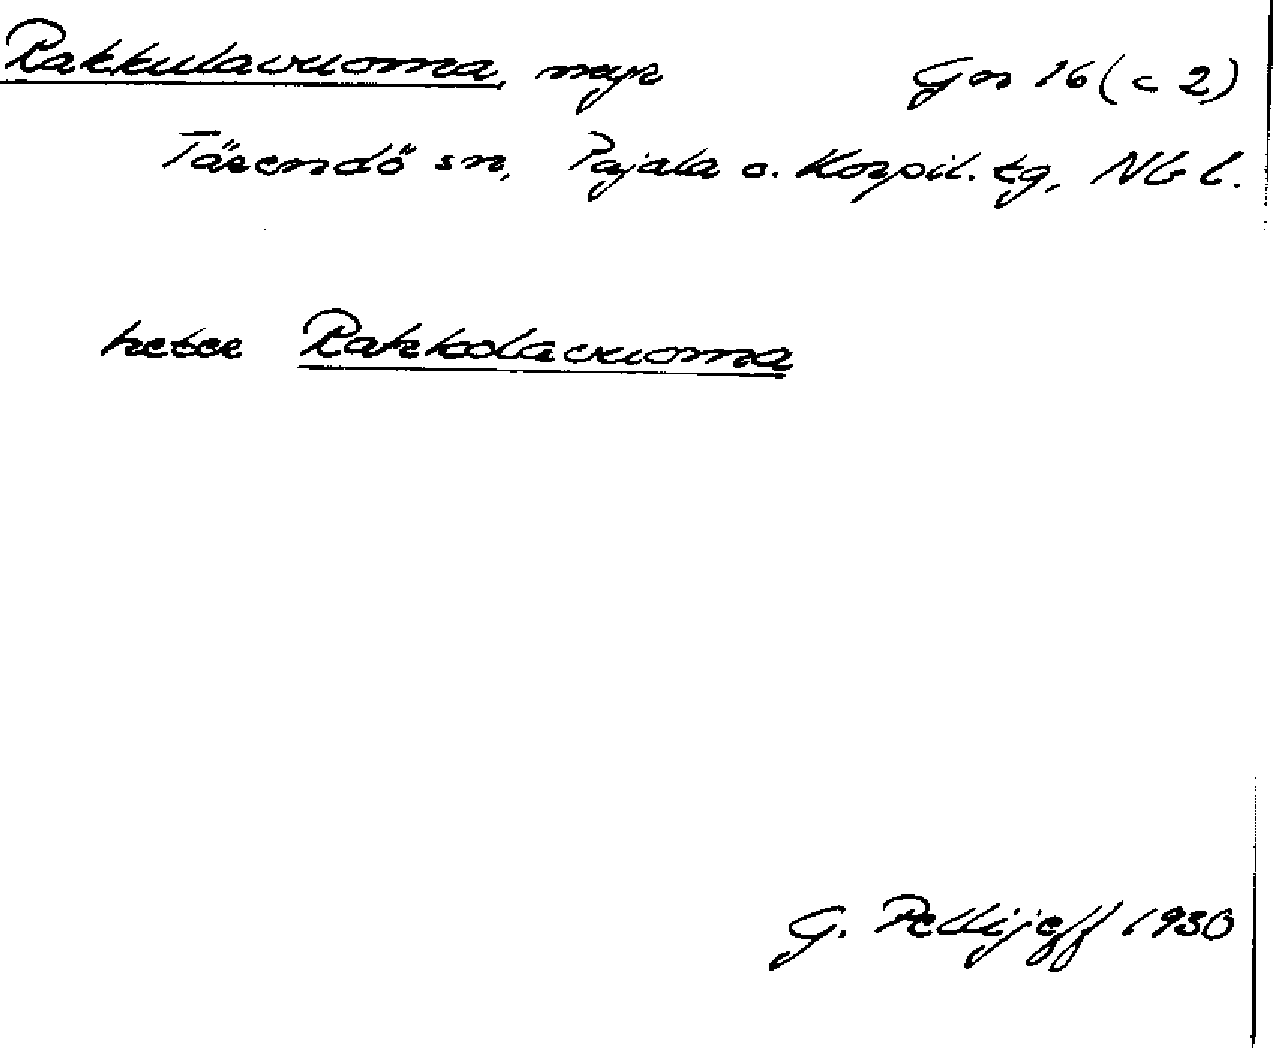 Rakkulavuoma, myr Gn 16 (c 2)
Tärendö sn, Pajala o. Korpil. tg, Nb l.
heter Rakkolavuoma
G. Pellijeff 1930